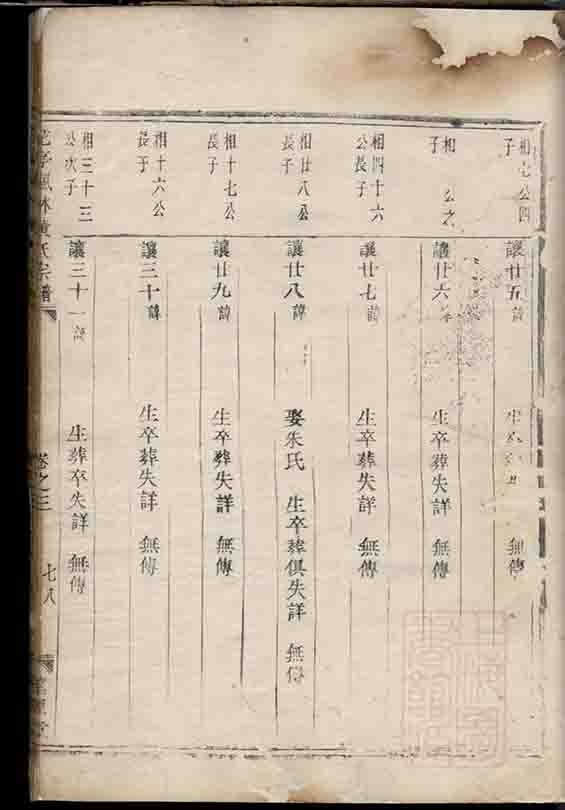 相七公四
子
讓廿五諱 無傳
相 公之
子
讓廿六 生卒葬失詳 無傳
相四十六
公長子
讓廿七諱 生卒葬失詳 無傳
相廿八公
長子
讓廿八諱 娶朱氏 生卒葬俱失詳 無傳
相十七公
長子
讓廿九諱 生卒葬失詳 無傳
相十六公
長子
讓三十諱 生卒葬失詳 無傳
相三十三
公次子
讓三十一諱 生葬卒失詳 無傳
林黃氏宗譜 卷之三 七八